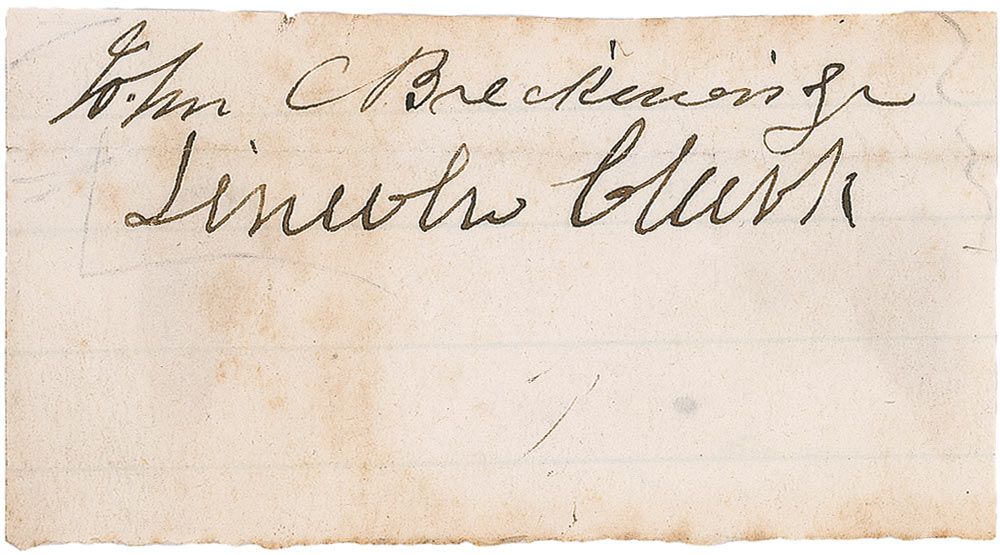 John C Breckinridge
Lincoln Clark